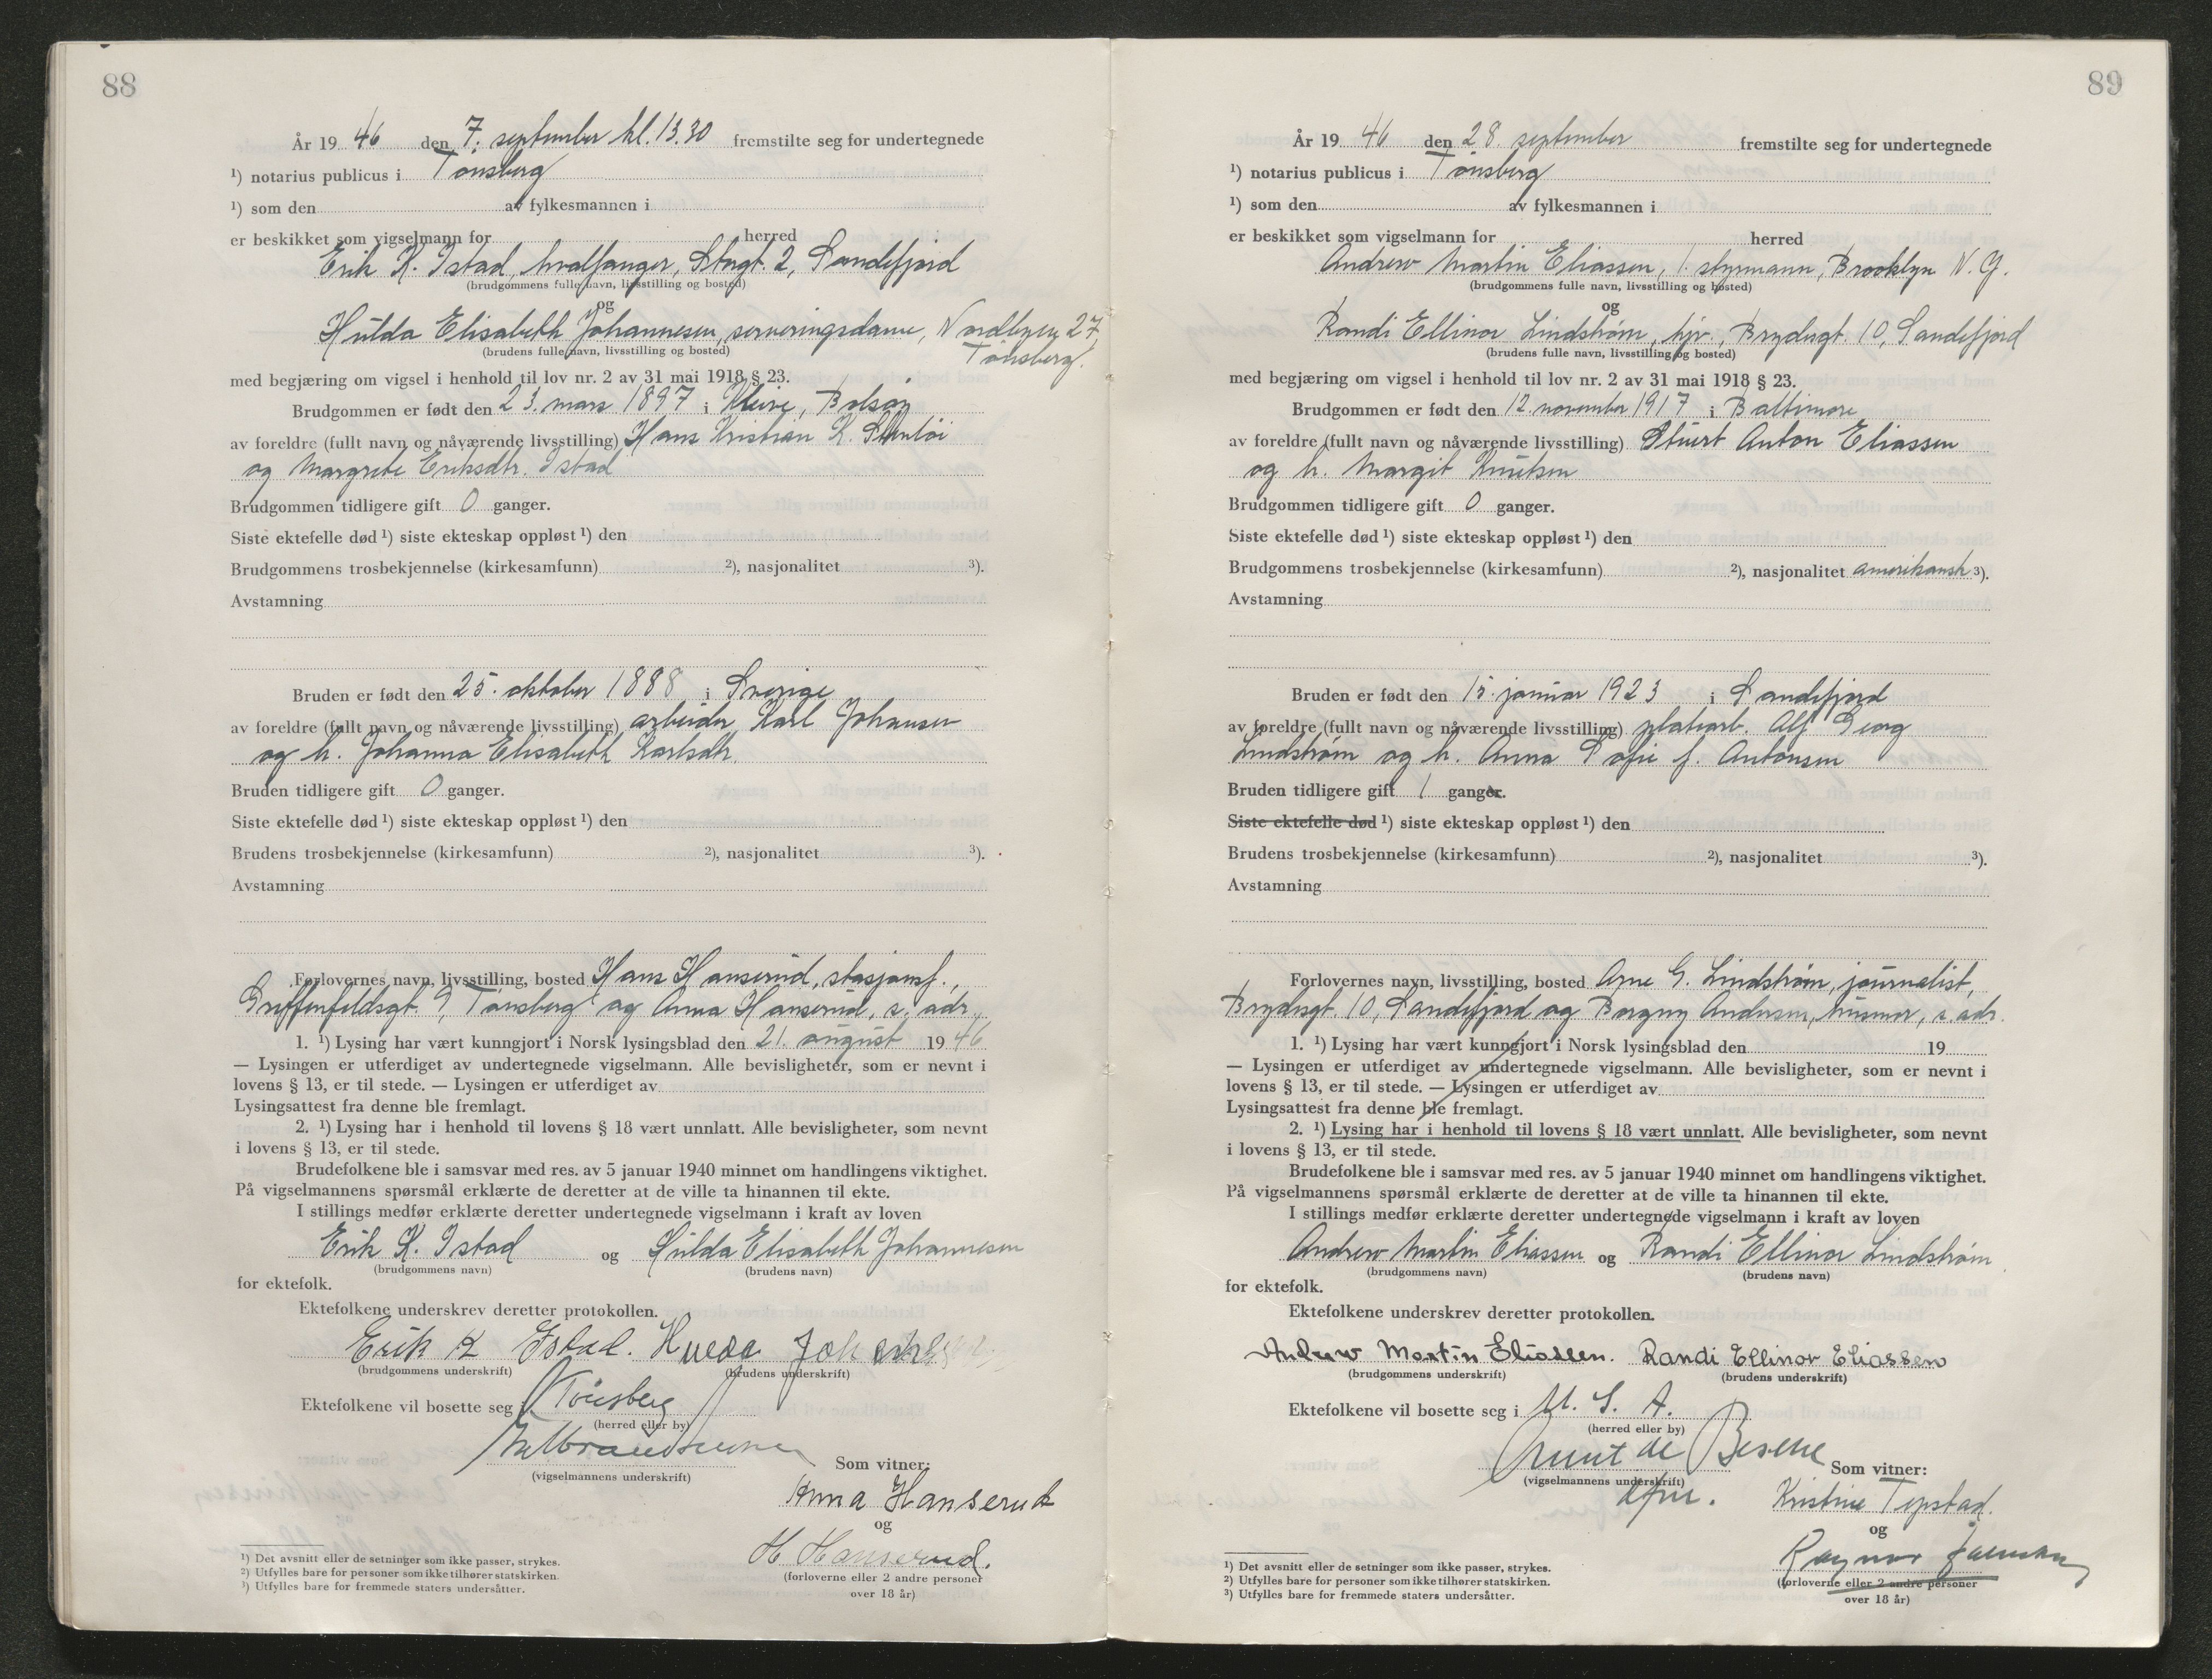 88
År 19 46 den 7. september kl. 13.30 fremstilte seg for undertegnede
¹) notarius publicus i Tønsberg
¹) som den av fylkesmannen i
er beskikket som vigselmann for herred
Erik K. Istad, hvalfanger, Storgt. 2, Sandefjord
(brudgommens fulle navn, livsstilling og bosted)
og
Hulda Elisabeth Johannesen, serveringsdame, Nordbyen 27,
(brudens fulle navn, livsstilling og bosted) Tønsberg.
med begjæring om vigsel i henhold til lov nr. 2 av 31 mai 1918 § 23.
Brudgommen er født den 23. mars 1897 i Kleive, Bolsøy
av foreldre (fullt navn og nåværende livsstilling) Hans Kristian K.
og Margrete Eriksdtr. Istad
Brudgommen tidligere gift 0 ganger.
Siste ektefelle død ¹) siste ekteskap oppløst ¹) den
Brudgommens trosbekjennelse (kirkesamfunn) ²), nasjonalitet ³).
Avstamning
Bruden er født den 25. oktober 1888 i Sverige
av foreldre (fullt navn og nåværende livsstilling) arbeider Karl Johansen
og h. Johanna Elisabeth Karlsdtr.
Bruden tidligere gift 0 ganger.
Siste ektefelle død ¹) siste ekteskap oppløst ¹) den
Brudens trosbekjennelse (kirkesamfunn) ²), nasjonalitet ³).
Avstamning
Forlovernes navn, livsstilling, bosted Hans Hanserud, stasjonsf.,
Griffenfeldsgt. 9, Tønsberg og Anna Hanserud, s. adr.
1. ¹) Lysing har vært kunngjort i Norsk lysingsblad den 21. august 19 46
— Lysingen er utferdiget av undertegnede vigselmann. Alle bevisligheter, som er nevnt i
lovens § 13, er til stede. — Lysingen er utferdiget av
Lysingsattest fra denne ble fremlagt.
2. ¹) Lysing har i henhold til lovens § 18 vært unnlatt. Alle bevisligheter, som nevnt
i lovens § 13, er til stede.
Brudefolkene ble i samsvar med res. av 5 januar 1940 minnet om handlingens viktighet.
På vigselmannens spørsmål erklærte de deretter at de ville ta hinannen til ekte.
I stillings medfør erklærte deretter undertegnede vigselmann i kraft av loven
Erik K. Istad og Hulda Elisabeth Johannesen
(brudgommens navn) (brudens navn)
for ektefolk.
Ektefolkene underskrev deretter protokollen.
Erik K Istad.
(brudgommens underskrift) (brudens underskrift)
Ektefolkene vil bosette seg i Tønsberg
(herred eller by)
(vigselmannens underskrift)
Som vitner:
Anna Hanserud
og
H Hanserud.
(forloverne eller 2 andre personer
over 18 år)
¹) Det avsnitt eller de setninger som ikke passer, strykes.
²) Utfylles bare for personer som ikke tilhører statskirken.
³) Utfylles bare for fremmede staters undersåtter.
89
År 19 46 den 28. september fremstilte seg for undertegnede
¹) notarius publicus i Tønsberg
¹) som den av fylkesmannen i
er beskikket som vigselmann for herred
Andrew Martin Eliassen, 1. styrmann, Brooklyn N.Y.
(brudgommens fulle navn, livsstilling og bosted)
og
Randi Ellinor Lindstrøm, hjv., Brydesgt. 10, Sandefjord
(brudens fulle navn, livsstilling og bosted)
med begjæring om vigsel i henhold til lov nr. 2 av 31 mai 1918 § 23.
Brudgommen er født den 12. november 1917 i Baltimore
av foreldre (fullt navn og nåværende livsstilling) Stuert Anton Eliassen
og h. Margit Knutsen
Brudgommen tidligere gift 0 ganger.
Siste ektefelle død ¹) siste ekteskap oppløst ¹) den
Brudgommens trosbekjennelse (kirkesamfunn) ²), nasjonalitet amerikansk ³).
Avstamning
Bruden er født den 15. januar 1923 i Sandefjord
av foreldre (fullt navn og nåværende livsstilling) platearb. Alf Georg
Lindstrøm og h. Anna Sofie f. Antonsen
Bruden tidligere gift 1 ganger.
Siste ektefelle død ¹) siste ekteskap oppløst ¹) den
Brudens trosbekjennelse (kirkesamfunn) ²), nasjonalitet ³).
Avstamning
Forlovernes navn, livsstilling, bosted Arne G. Lindstrøm, journalist,
Brydesgt. 10, Sandefjord og Borgny Andersen, husmor, s. adr.
1. ¹) Lysing har vært kunngjort i Norsk lysingsblad den 19
— Lysingen er utferdiget av undertegnede vigselmann. Alle bevisligheter, som er nevnt i
lovens § 13, er til stede. — Lysingen er utferdiget av
Lysingsattest fra denne ble fremlagt.
2. ¹) Lysing har i henhold til lovens § 18 vært unnlatt. Alle bevisligheter, som nevnt
i lovens § 13, er til stede.
Brudefolkene ble i samsvar med res. av 5 januar 1940 minnet om handlingens viktighet.
På vigselmannens spørsmål erklærte de deretter at de ville ta hinannen til ekte.
I stillings medfør erklærte deretter undertegnede vigselmann i kraft av loven
Andrew Martin Eliassen og Randi Ellinor Lindstrøm
(brudgommens navn) (brudens navn)
for ektefolk.
Ektefolkene underskrev deretter protokollen.
Andrew Martin Eliassen. Randi Ellinor Eliassen
(brudgommens underskrift) (brudens underskrift)
Ektefolkene vil bosette seg i U. S. A.
(herred eller by)
de Besche
(vigselmannens underskrift)
Som vitner:
Kristine Tepstad.
og
Ragnar
(forloverne eller 2 andre personer
over 18 år)
¹) Det avsnitt eller de setninger som ikke passer, strykes.
²) Utfylles bare for personer som ikke tilhører statskirken.
³) Utfylles bare for fremmede staters undersåtter.